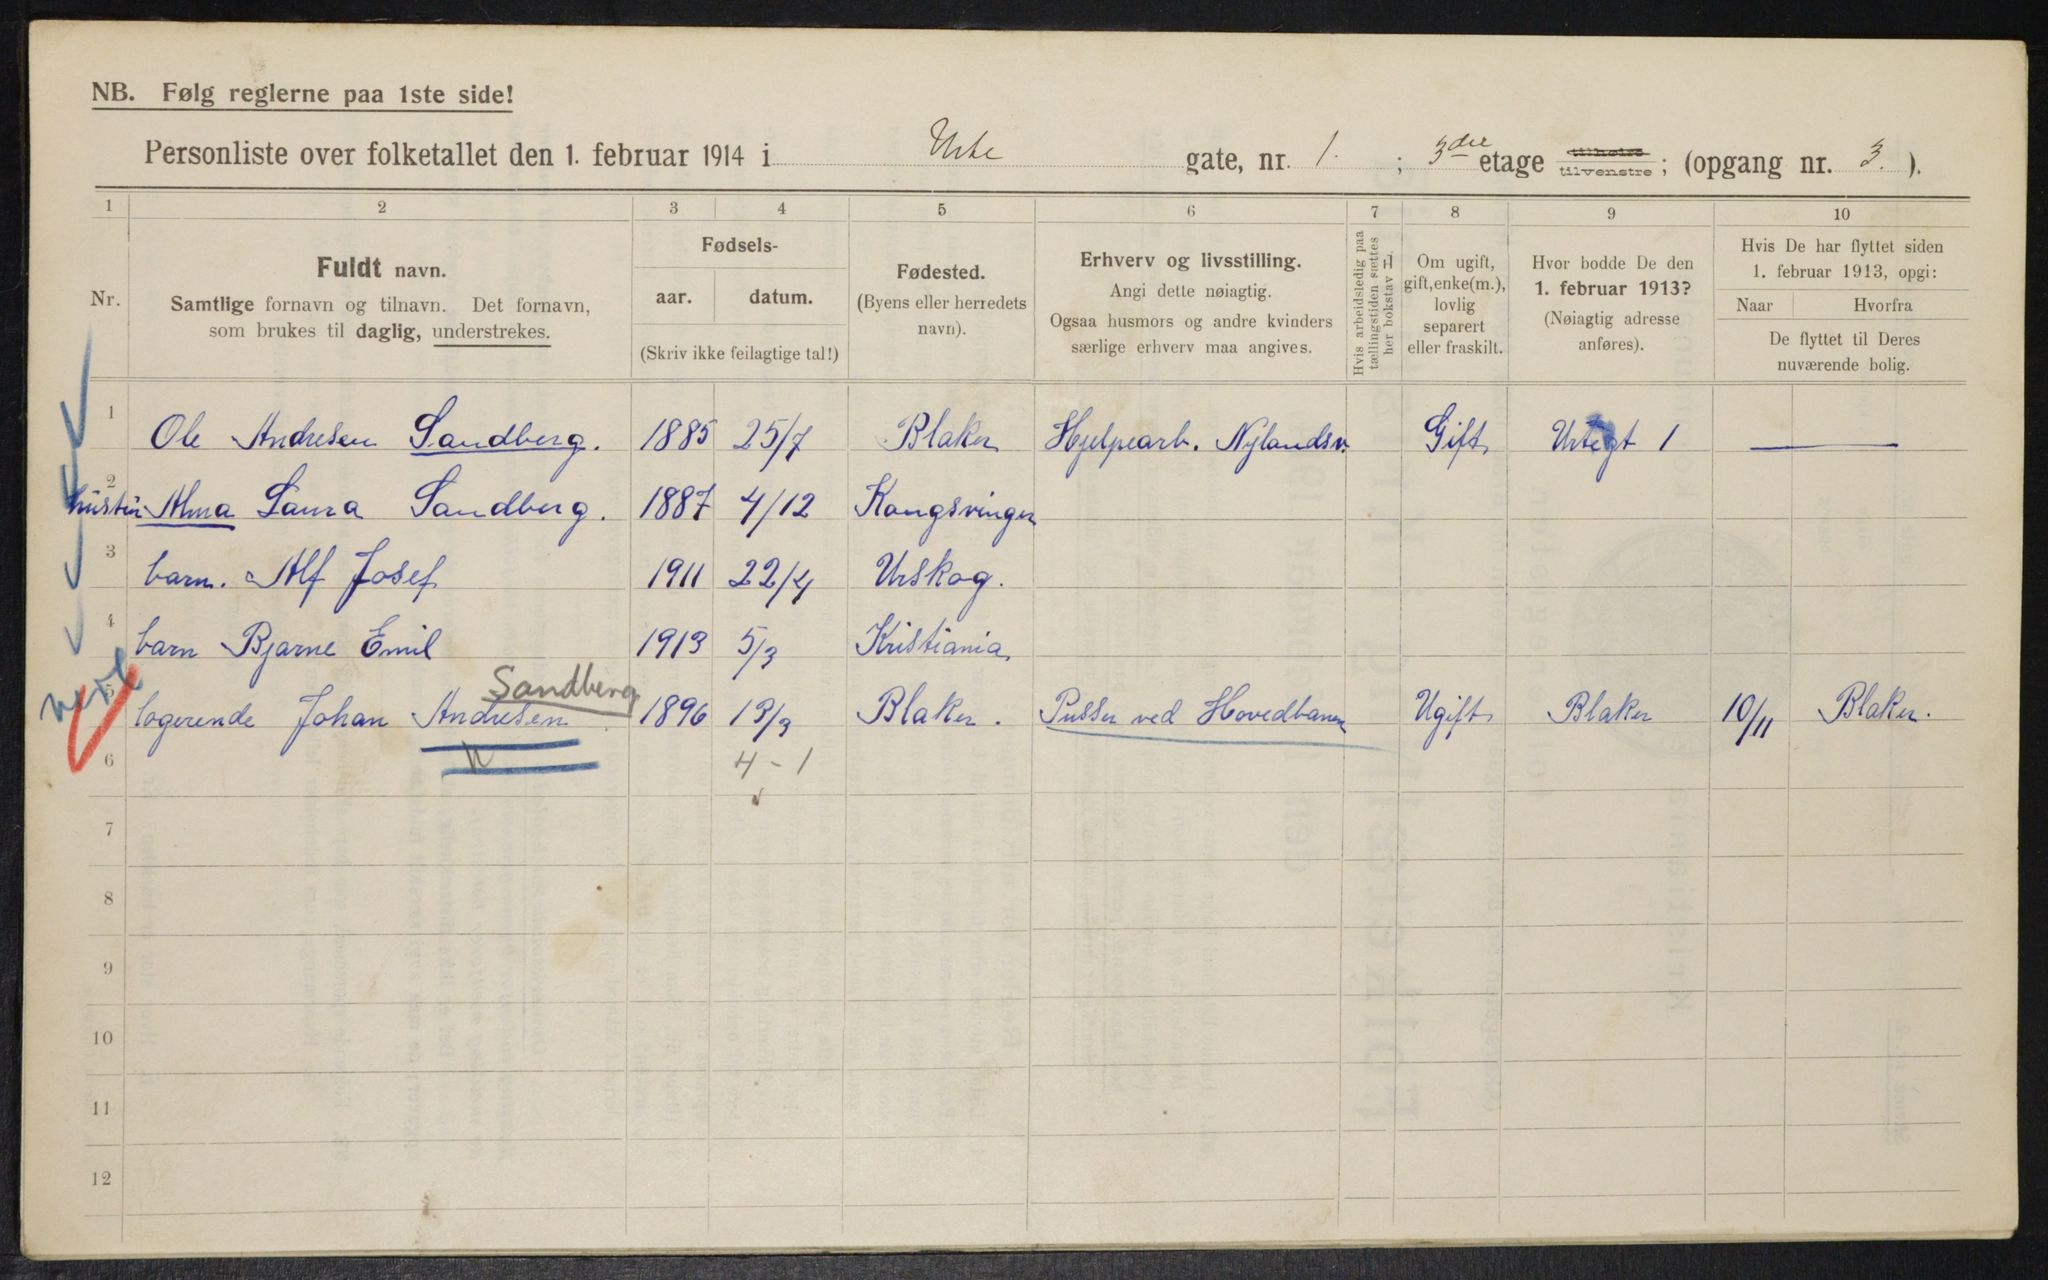 NB. Følg reglerne paa 1ste side!
Personliste over folketallet den 1. februar 1914 i Urte gate, nr. 1. ; 3die etage tilhøire tilvenstre ; (opgang nr. 3. ).
1 2 3 4 5 6 7 8 9 10
Nr.
Fuldt navn.
Samtlige fornavn og tilnavn. Det fornavn,
som brukes til daglig, understrekes.
Fødsels-
aar. datum.
(Skriv ikke feilagtige tal!)
Fødested.
(Byens eller herredets
navn).
Erhverv og livsstilling.
Angi dette nøiagtig.
Ogsaa husmors og andre kvinders
særlige erhverv maa angives.
Hvis arbeidsledig paa
tællingstiden sættes
her bokstav
Om ugift,
gift, enke(m.),
lovlig
separert
eller fraskilt.
Hvor bodde De den
1. februar 1913?
(Nøiagtig adresse
anføres).
Hvis De har flyttet siden
1. februar 1913, opgi:
Naar Hvorfra
De flyttet til Deres
nuværende bolig.
1 Ole Andresen Sandberg. 1885 25/7 Blaker Hjelpearb. Nylandsv. Gift Urtegt 1 —
2 hustru Alma Laura Sandberg. 1887 4/12 Kongsvinger
3 barn. Alf Josef 1911 22/4 Urskog.
4 barn Bjarne Emil 1913 5/3 Kristiania
Sandberg
5 logerende Johan Andresen 1896 13/3 Blaker. Pusser ved Hovedbanen Ugift Blaker 10/11 Blaker.
6 4-1
7
8
9
10
11
12